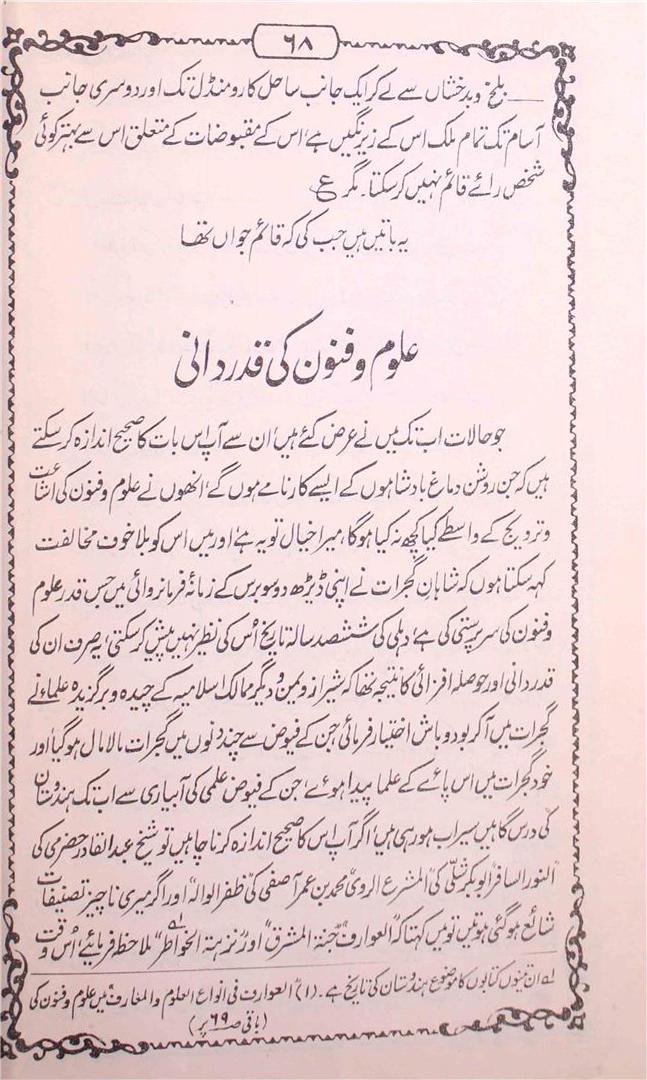 ۶۸
ـــ بلخ و بدخشاں سے لے کر ایک جانب ساحل کارومنڈل تک اور دوسری جانب
آسام تک تمام ملک اس کے زیر نگیں ہے، اس کے مقبوضات کے متعلق اس سے بہتر کوئی
شخص رائے قائم نہیں کر سکتا۔ مگر ع
یہ باتیں ہیں جب کی کہ قائم جواں تھا
علوم و فنون کی قدردانی
جو حالات اب تک میں نے عرض کئے ہیں، ان سے آپ اس بات کا صحیح اندازہ کر سکتے
ہیں کہ جن روشن دماغ بادشاہوں کے ایسے کارنامے ہوں گے، انھوں نے علوم و فنون کی اشاعت
و ترویج کے واسطے کیا کچھ نہ کیا ہوگا، میرا خیال تو یہ ہے، اور میں اس کو بلا خوف مخالفت
کہہ سکتا ہوں کہ شاہان گجرات نے اپنی ڈیڑھ دو سو برس کے زمانۂ فرمانروائی میں جس قدر علوم
و فنون کی سرپرستی کی ہے، دہلی کی ششصد سالہ تاریخ اُس کی نظیر نہیں پیش کر سکتی، یہ صرف ان کی
قدردانی اور حوصلہ افزائی کا نتیجہ تھا کہ شیراز و یمن و دیگر ممالک اسلامیہ کے چیدہ و برگزیدہ علماء نے
گجرات میں آکر بود و باش اختیار فرمائی جن کے فیوض سے چند دنوں میں گجرات مالا مال ہو گیا، اور
خود گجرات میں اس پائے کے علما پیدا ہوئے، جن کے فیوض علمی کی آبیاری سے اب تک ہندوستان
کی درس گاہیں سیراب ہو رہی ہیں، اگر آپ اس کا صحیح اندازہ کرنا چاہیں تو شیخ عبدالقادر حضری کی
النور السافر، ابوبکر شلی کی المشرع الروی، محمد بن عمر آصفی کی ظفر الوالہ، اور اگر میری ناچیز تصنیفات
شائع ہو گئی ہوتیں تو میں کہتا کہ "العوارف" "جنۃ المشرق" اور "نزہۃ الخواطر" لہ ملاحظہ فرمائیے، اُس وقت
لہ ان تینوں کتابوں کا موضوع ہندوستان کی تاریخ ہے۔ (۱) "العوارف فی انواع العلوم والمعارف" میں علوم و فنون کی
(باقی صـ ۶۹ پر)